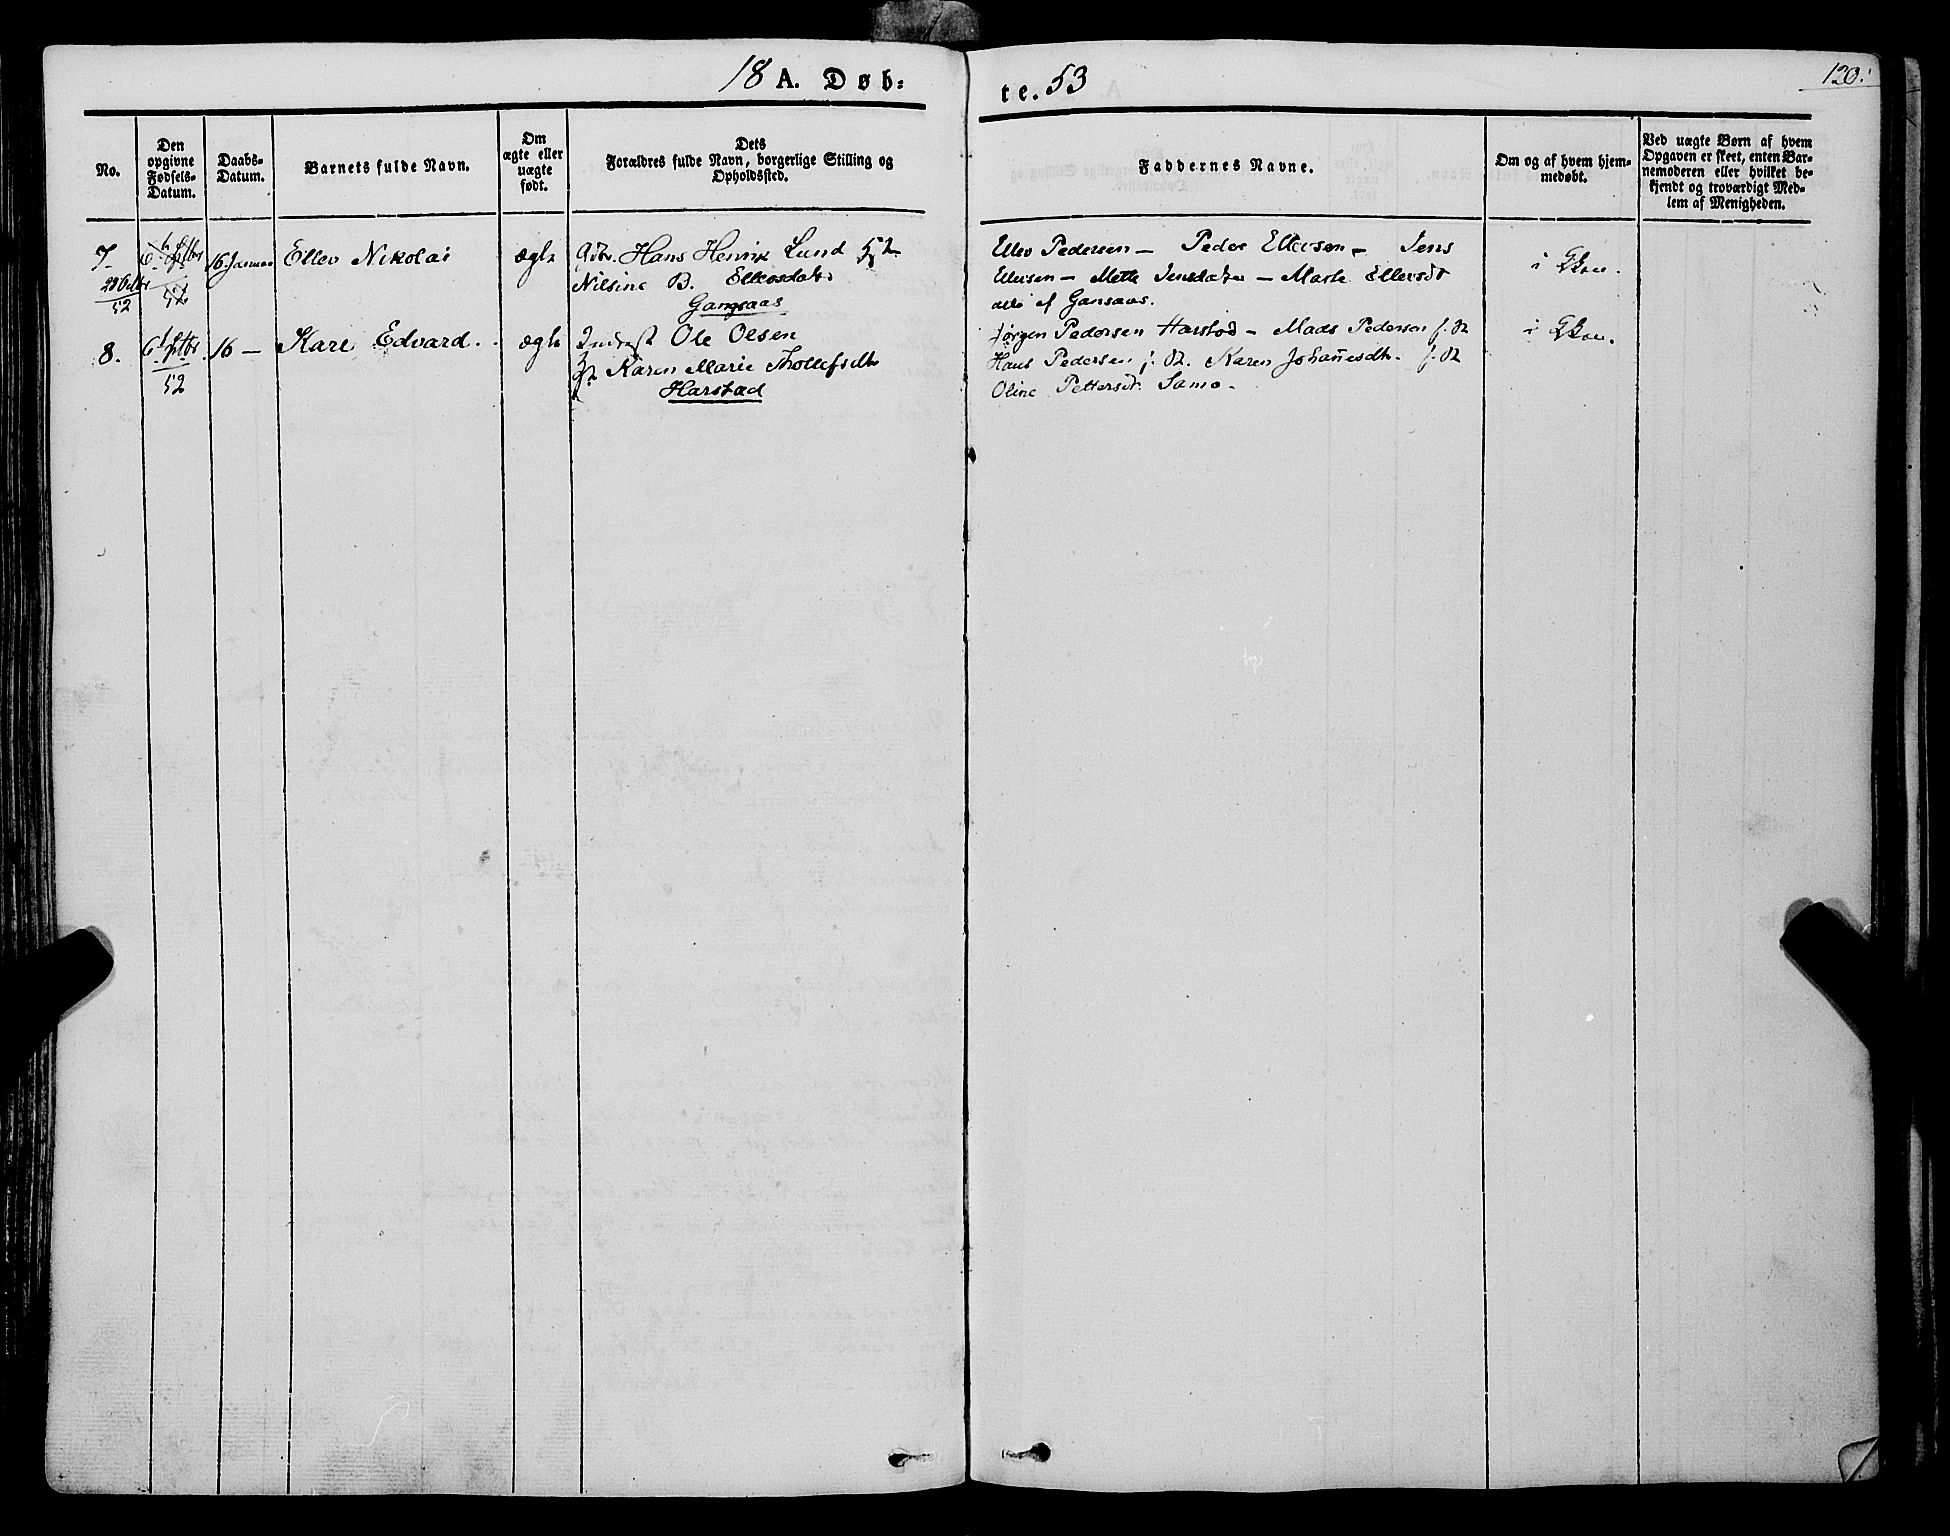 18 A. Døb=
te. 53
120.
No.
Den opgivne Fødsels-Datum.
Daabs-Datum.
Barnets fulde Navn.
Om ægte eller uægte født.
Dets Forældres fulde Navn, borgerlige Stilling og Opholdssted.
Faddernes Navne.
Om og af hvem hjem-medøbt.
Ved uægte Børn af hvem Opgaven er skeet, enten Bar-nemoderen eller hvilket be-kjendt og troværdigt Med-lem af Menigheden.
7. 52 16 Januar Ellev Nikolai ægte Hans Henrik Lund
Nilsine B. Ellevsdatr
Gangsaas
Ellev Pedersen – Peder Ellevsen – Jens
Ellevsen – Mette Jensdatter – Marte Ellevsdt
alle af Gansaas.
i Kken.
8. 6 Sptbr 52 16 – Kare Edvard. ægte Inderst Ole Olsen
Karen Marie Thollefsdtr
Harstad
Jørgen Pedersen Harstad – Mads Pedersen
Hans Pedersen Karen Johannesdtr.
Oline Pettersdt. Samo.
i Kken.